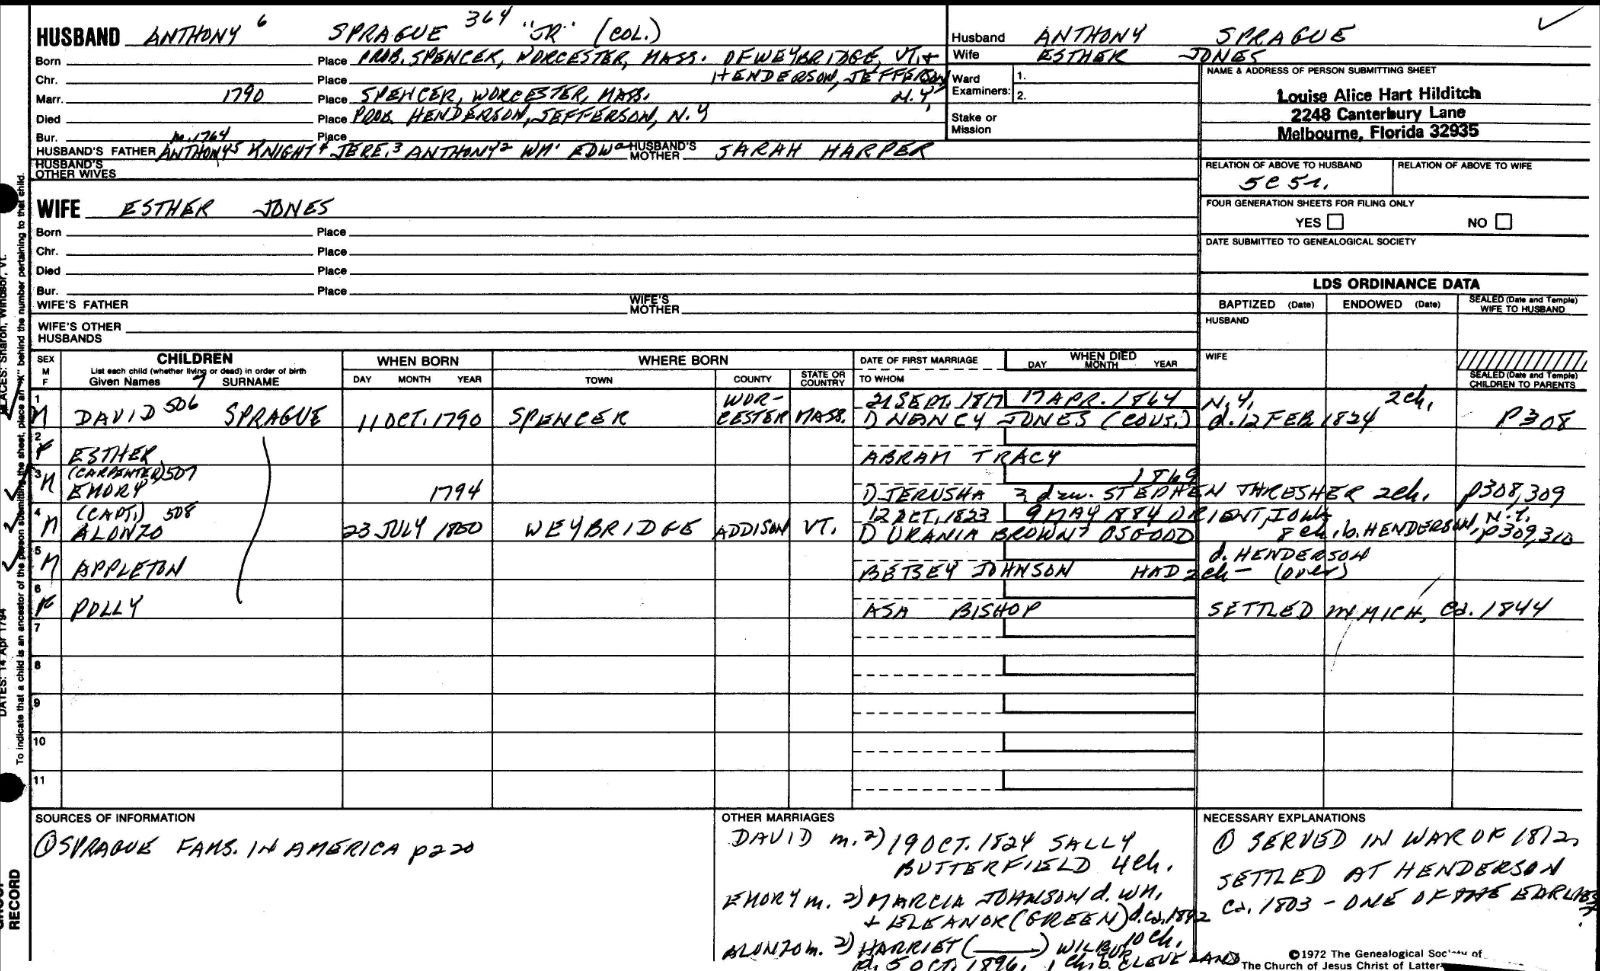 HUSBAND ANTHONY 6 SPRAGUE 364 "JR" (COL.)
Born Place PROB. SPENCER, WORCESTER, MASS. OF WEYBRIDGE, VT. +
Chr. Place HENDERSON, JEFFERSON
Marr. 1790 Place SPENCER, WORCESTER, MASS. N.Y.
Died Place PROB. HENDERSON, JEFFERSON, N.Y
Bur. m. 1764 Place
HUSBAND'S FATHER ANTHONY5 KNIGHT4 JERE.3 ANTHONY2 WM1 EDWa HUSBAND'S MOTHER SARAH HARPER
HUSBAND'S OTHER WIVES
Husband ANTHONY SPRAGUE
Wife ESTHER JONES
Ward Examiners: 1.
2.
Stake or Mission
NAME & ADDRESS OF PERSON SUBMITTING SHEET
Louise Alice Hart Hilditch
2248 Canterbury Lane
Melbourne, Florida 32935
RELATION OF ABOVE TO HUSBAND RELATION OF ABOVE TO WIFE
5C 5r.
FOUR GENERATION SHEETS FOR FILING ONLY
YES NO
DATE SUBMITTED TO GENEALOGICAL SOCIETY
WIFE ESTHER JONES
Born Place
Chr. Place
Died Place
Bur. Place
WIFE'S FATHER WIFE'S MOTHER
WIFE'S OTHER HUSBANDS
LDS ORDINANCE DATA
BAPTIZED (Date) ENDOWED (Date) SEALED (Date and Temple) WIFE TO HUSBAND
HUSBAND
WIFE
SEALED (Date and Temple) CHILDREN TO PARENTS
SEX M F CHILDREN WHEN BORN WHERE BORN DATE OF FIRST MARRIAGE WHEN DIED
List each child (whether living or dead) in order of birth
Given Names 7 SURNAME DAY MONTH YEAR TOWN COUNTY STATE OR COUNTRY TO WHOM DAY MONTH YEAR
1 WOR- 21 SEPT. 1817 17 APR. 1864 N.Y. 2ch.
M DAVID 506 SPRAGUE 11 OCT. 1790 SPENCER CESTER MASS. 1) NANCY JONES (COUS.) d. 12 FEB 1824 P308
2
F ESTHER ABRAM TRACY
3 (CARPENTER) 507 1869
M EMORY 1794 1) JERUSHA dau. STEPHEN THRESHER 2ch. p308,309
4 (CAPT.) 508 12 OCT. 1823 9 MAY 1884 ORIENT, IOWA
M ALONZO 23 JULY 1800 WEYBRIDGE ADDISON VT. 1) URANIA BROWN OSGOOD 8 ch. b. HENDERSON, N.Y. p309,310
5 d. HENDERSON
M APPLETON BETSEY JOHNSON HAD 2ch - (over)
6
F POLLY ASA BISHOP SETTLED in MICH. Ca. 1844
7
8
9
10
11
SOURCES OF INFORMATION
① SPRAGUE FAMS. IN AMERICA p220
OTHER MARRIAGES
DAVID m. 2) 19 OCT. 1824 SALLY
BUTTERFIELD 4ch.
EMORY m. 2) MARCIA JOHNSON d. WM.
+ ELEANOR (GREEN) d. ca. 1842
10 ch.
ALONZO m. 2) HARRIET (____) WILBUR
d. 5 OCT. 1896. 1 ch. b. CLEVELAND
NECESSARY EXPLANATIONS
① SERVED IN WAR OF 1812,
SETTLED AT HENDERSON
Ca. 1803 - ONE OF THE EARLIEST
©1972 The Genealogical Society of
The Church of Jesus Christ of Latter
PLACES: Sharon, Windsor, Vt.
DATES: 14 Apr 1794
To indicate that a child is an ancestor of the person submitting the sheet, place an "X" behind the number pertaining to that child.
RECORD